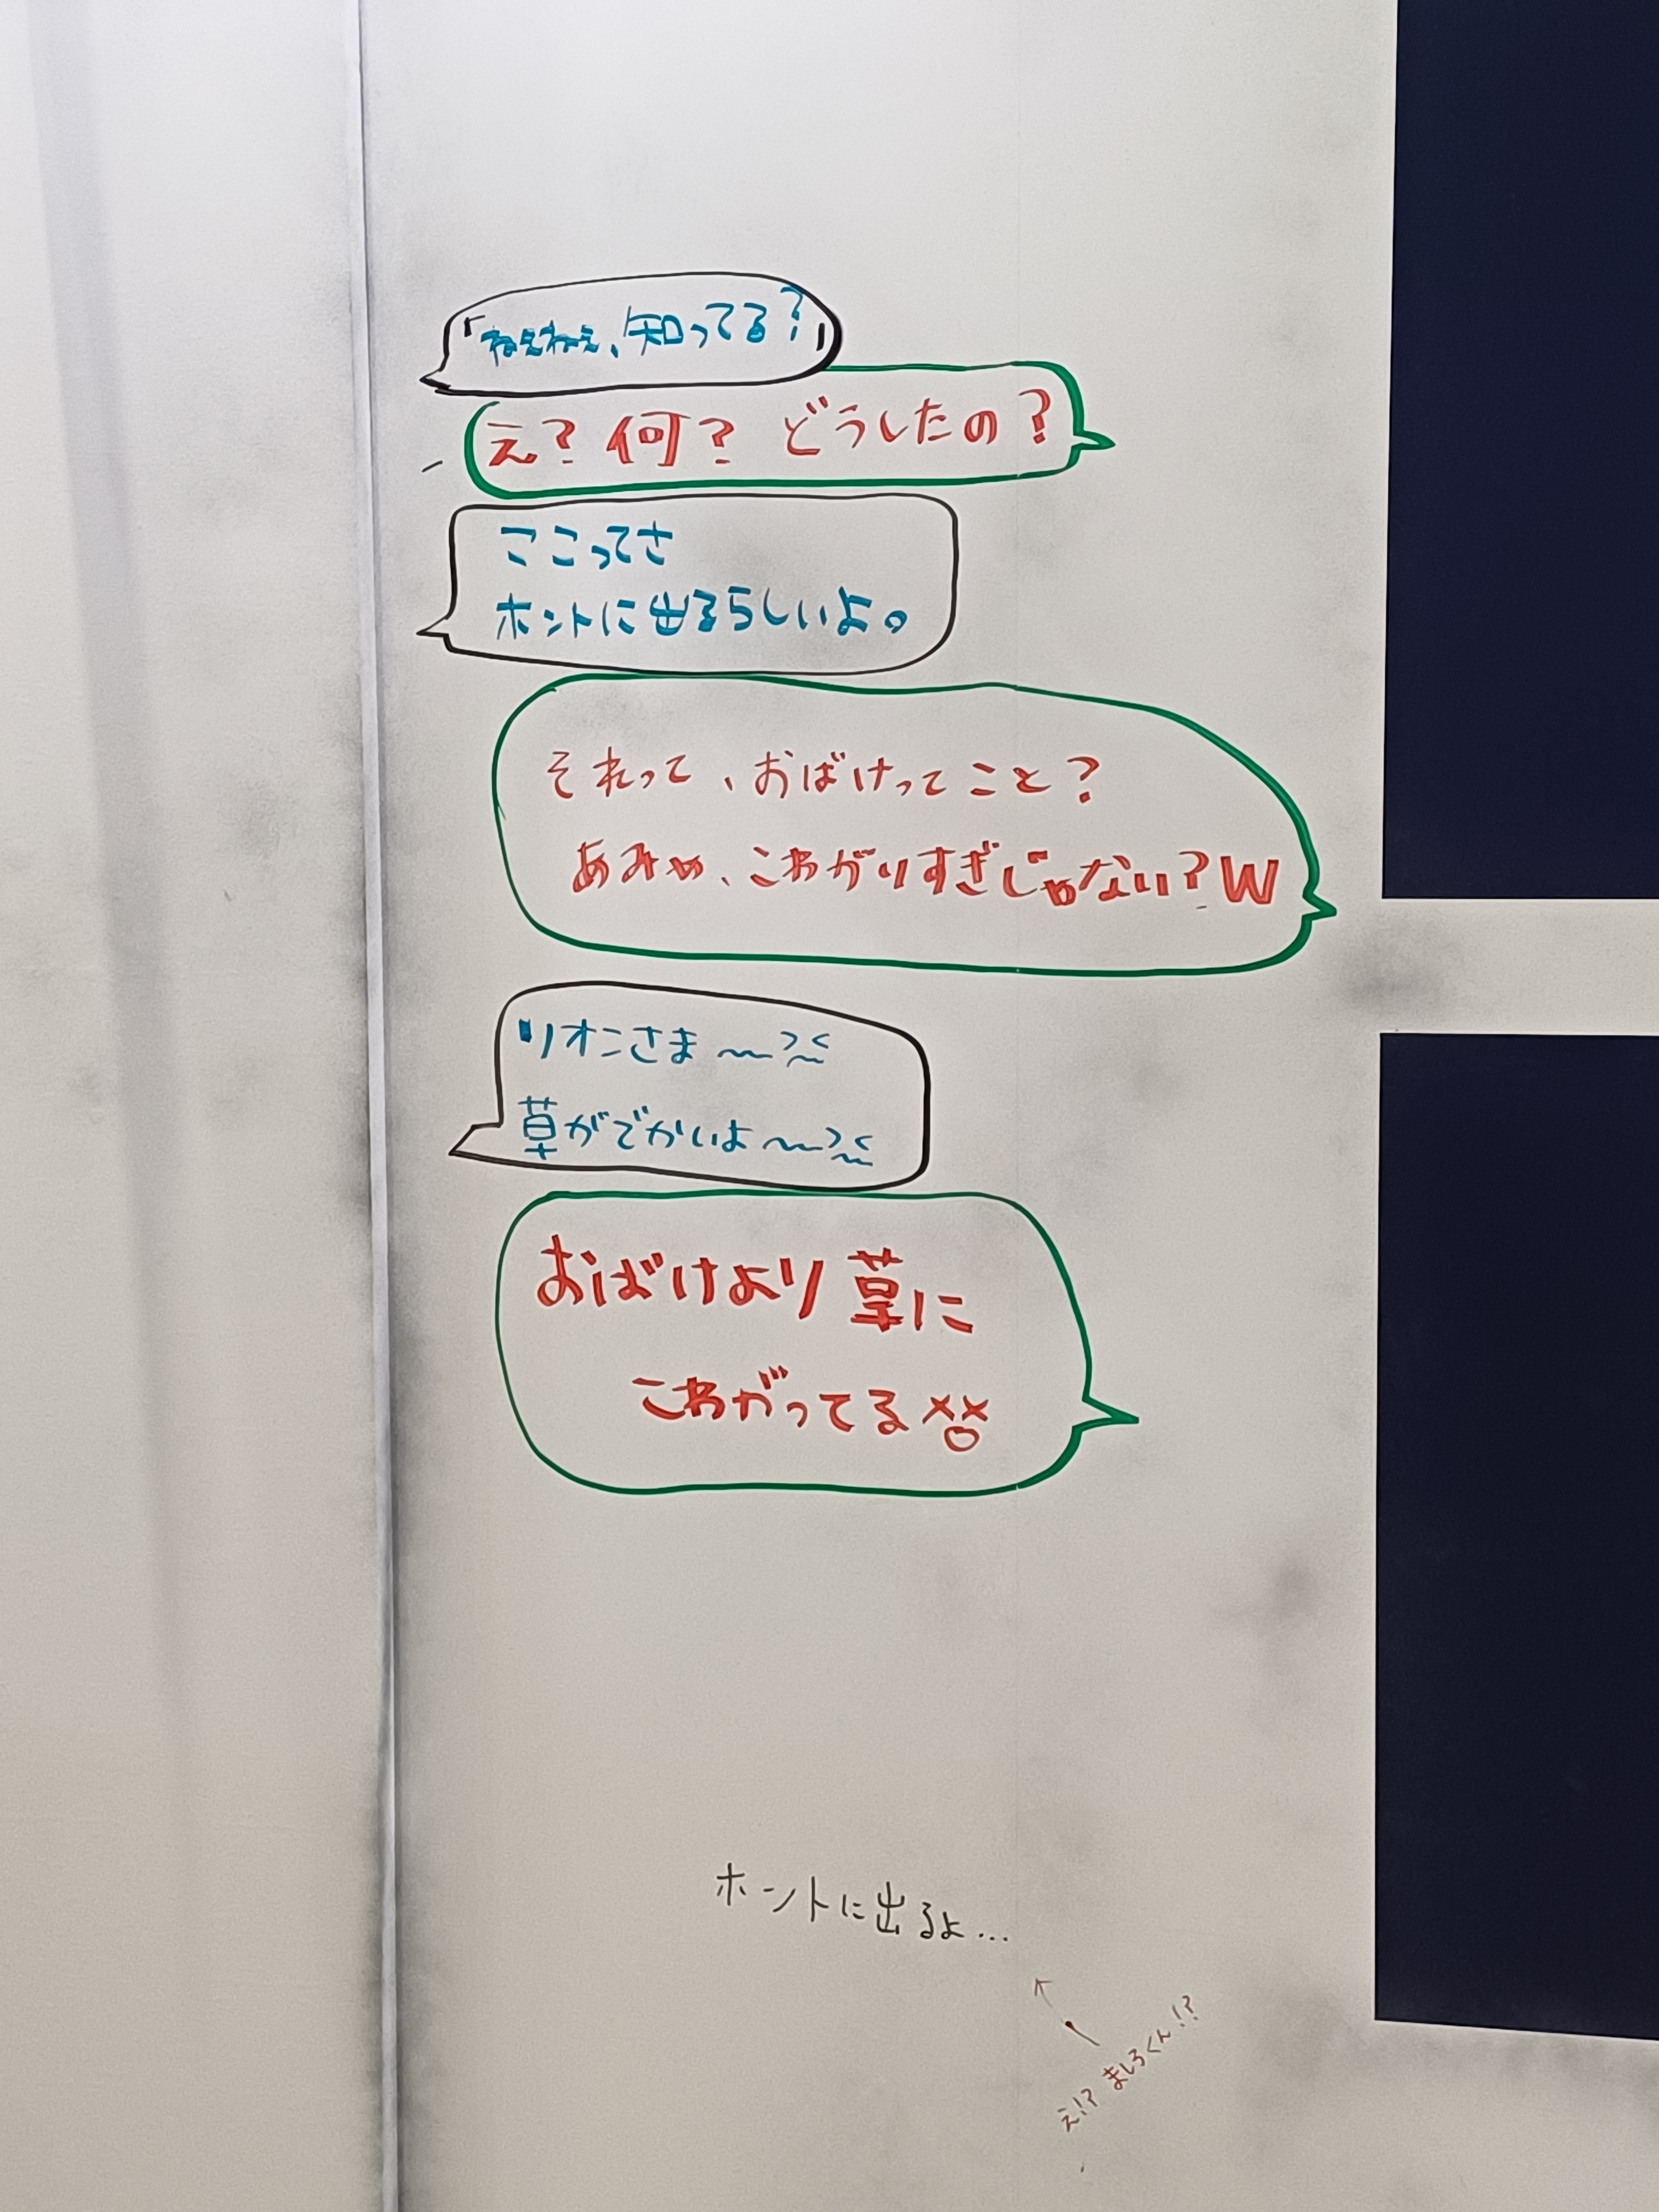 「ねぇねぇ、知ってる？」
え？何？ どうしたの？
ここってさ
ホントに出るらしいよ。
それって、おばけってこと？
あみゃ、こわがりすぎじゃない？W
リオンさま〜〜
草がでかいよ〜〜
おばけより草に
こわがってる
ホントに出るよ...
え!? ましろくん!?